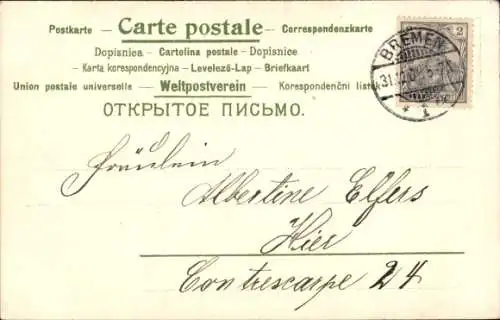 Postkarte — Carte postale — Correspondenzkarte
Dopisnica — Cartolina postale — Dopisnice
— Karta korespondencyjna — Levelező-Lap — Briefkaart
Union postale universelle — Weltpostverein — Korespondenční lístek
ОТКРЫТОЕ ПИСЬМО.
2
BREMEN
1
Fräulein
Albertine Elfers
Hier
Contrescarpe 24